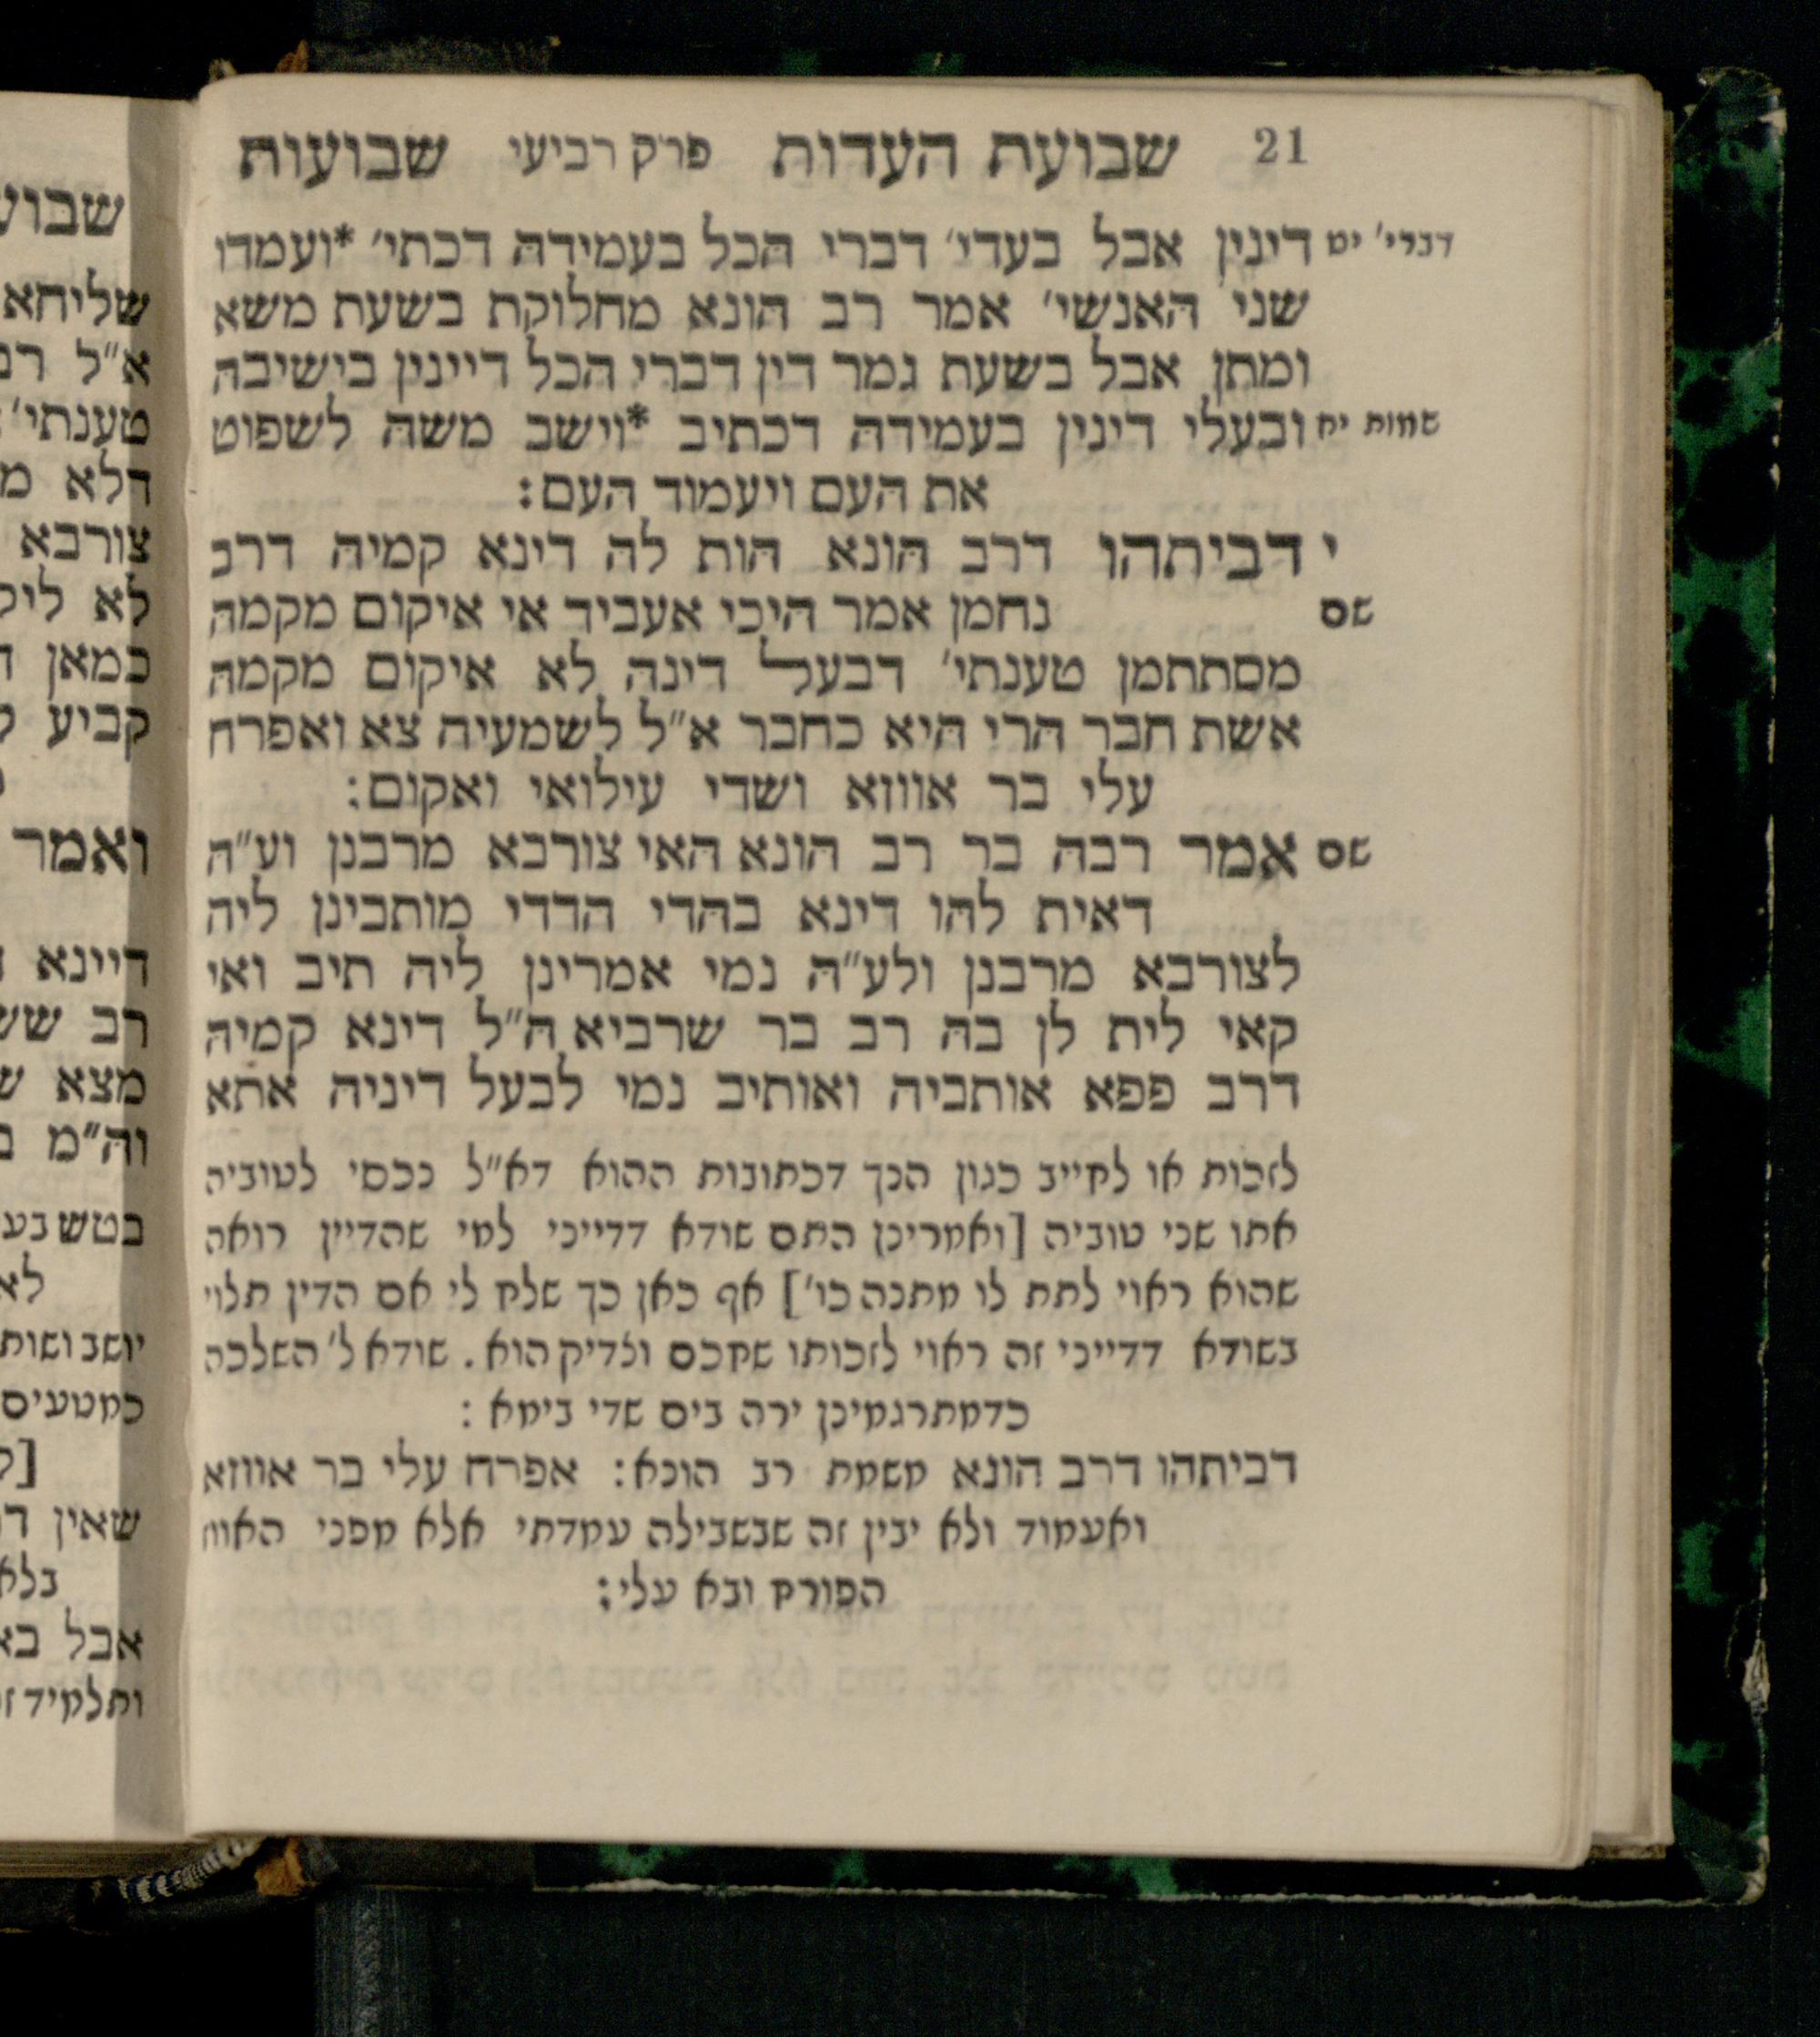 21 שבועת העדות פרק רביעי שבועות
דברי׳ יט דינין אבל בעדי׳ דברי הכל בעמידה דכתי׳ *ועמדו
שני האנשי׳ אמר רב הונא מחלוקת בשעת משא
ומתן אבל בשעת גמר דין דברי הכל דיינין בישיבה
שמות יח ובעלי דינין בעמידה דכתיב *וישב משה לשפוט
את העם ויעמוד העם:
י דביתהו דרב הונא הות לה דינא קמיה דרב
שם נחמן אמר היכי אעביד אי איקום מקמה
מסתתמן טענתי׳ דבעל דינה לא איקום מקמה
אשת חבר הרי היא כחבר א״ל לשמעיה צא ואפרח
עלי בר אווזא ושדי עילואי ואקום:
שם אמר רבה בר רב הונא האי צורבא מרבנן וע״ה
דאית להו דינא בהדי הדדי מותבינן ליה
לצורבא מרבנן ולע״ה נמי אמרינן ליה תיב ואי
קאי לית לן בה רב בר שרביא ה״ל דינא קמיה
דרב פפא אותביה ואותיב נמי לבעל דיניה אתא
לזכות או לחייב כגון הנך דכתובות ההוא דא״ל נכסי לטוביה
אתו שני טוביה [ואמרינן התם שודא דדייני למי שהדיין רואה
שהוא ראוי לתת לו מתנה כו׳] אף כאן כך שלח לי אם הדין תלוי
בשודא דדייני זה ראוי לזכותו שחכם וצדיק הוא. שודא ל׳ השלכה
כדמתרגמינן ירה בים שדי בימא:
דביתהו דרב הונא משמת רב הונא: אפרח עלי בר אווזא
ואעמוד ולא יבין זה שבשבילה עמדתי אלא מפני האווז
הפורח ובא עלי:
שבוע
שליחא
א״ל רב
טענתי׳
דלא
צורבא
לא
כמאן
קביע
ואמר
דיינא
רב
מצא
וה״מ
יושב ושות
כמטעים
שאין
אבל
ותלמיד